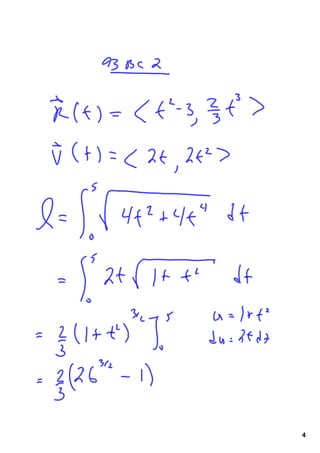 93 BC 2
R⃗(t) = < t² - 3, 2/3 t³ >
V⃗(t) = < 2t, 2t² >
l = ∫₀⁵ √(4t² + 4t⁴) dt
= ∫₀⁵ 2t √(1 + t²) dt
= 2/3 (1 + t²)^(3/2) ]₀⁵ u = 1 + t²
du = 2t dt
= 2/3 (26^(3/2) - 1)
4